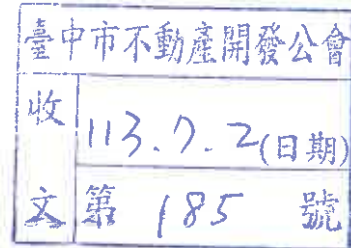 臺中市不動產開發公會
收
113.7.2(日期)
文 第 185 號